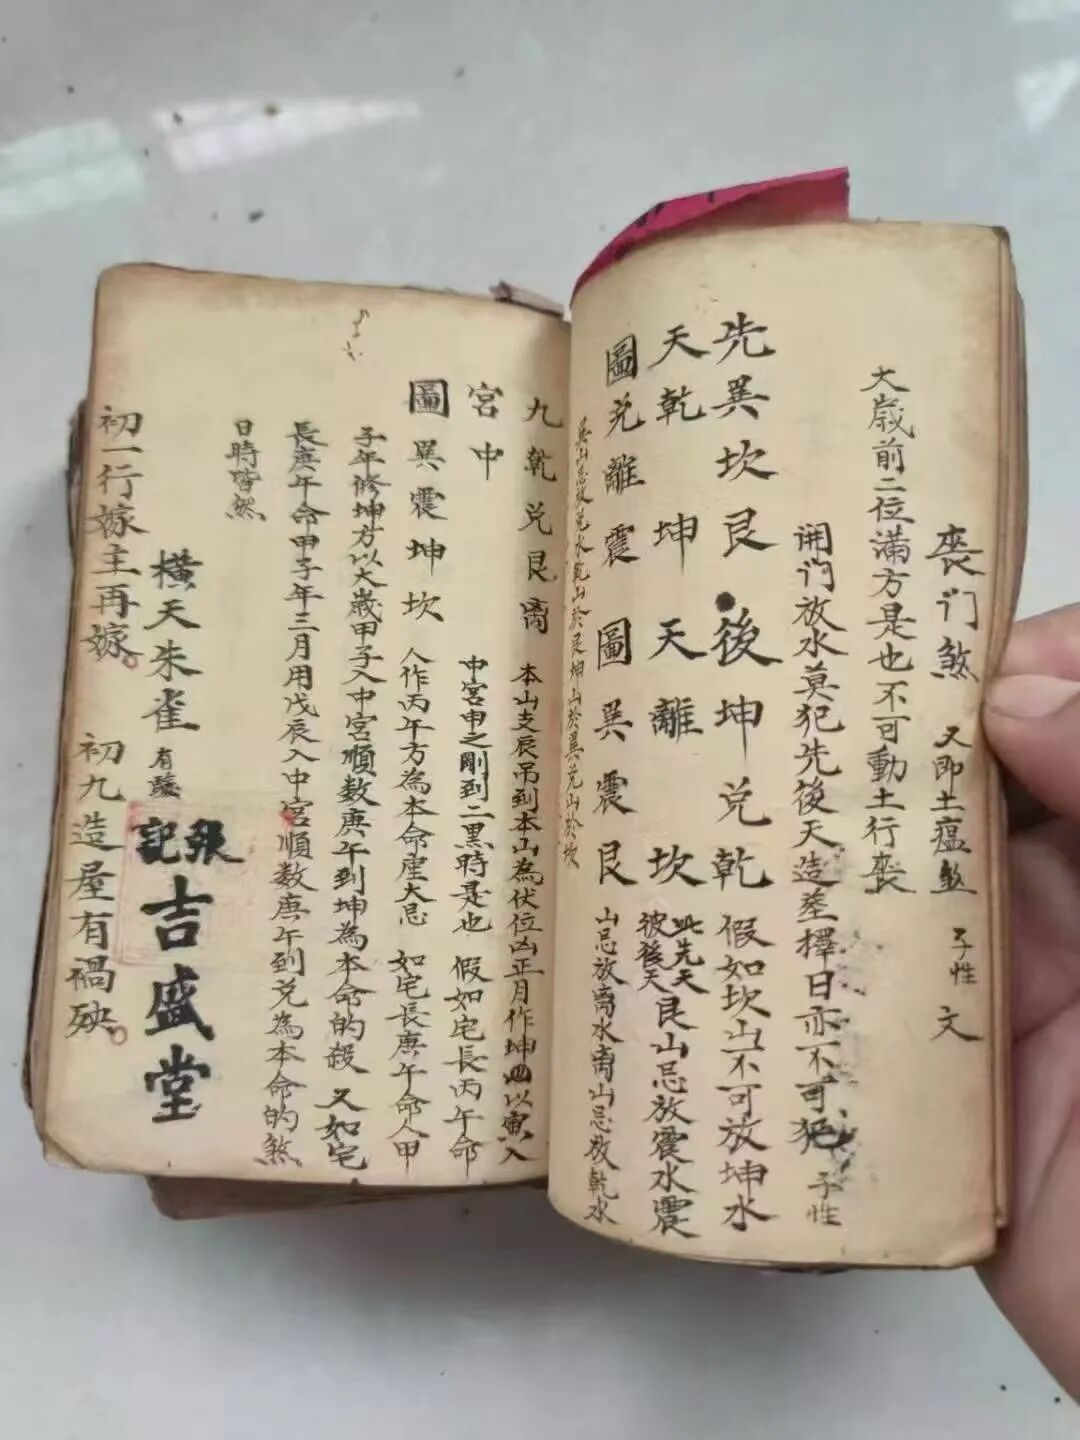 喪门煞 又即土瘟煞 子性 文
大歲前二位滿方是也不可動土行喪
開门放水莫犯先後天造塟擇日亦不可犯 子性
先巽坎艮 後坤兑乾 假如坎山不可放坤水
天乾坤 天離坎 此先天彼後天 艮山忌放震水震
圖兑離震 圖巽震艮 山忌放离水离山忌放乾水
巽山忌放兑水乾山於艮坤山於巽兑山於坎
九乾兑艮离 本山支辰吊到本山為伏位凶正月作坤四以寅入
宮中 中宮申之剛到二黑時是也 假如宅長丙午命
圖巽震坤坎 人作丙午方為本命産大忌 如宅長庚午命人甲
子年修坤方以大歲甲子入中宮順数庚午到坤為本命的殺 又如宅
長庚午命甲子年三月用戊辰入中宮順数庚午到兑為本命的煞
日時皆然
橫天朱雀
張記
吉盛堂
初一行嫁主再嫁。 初九造屋有禍殃。